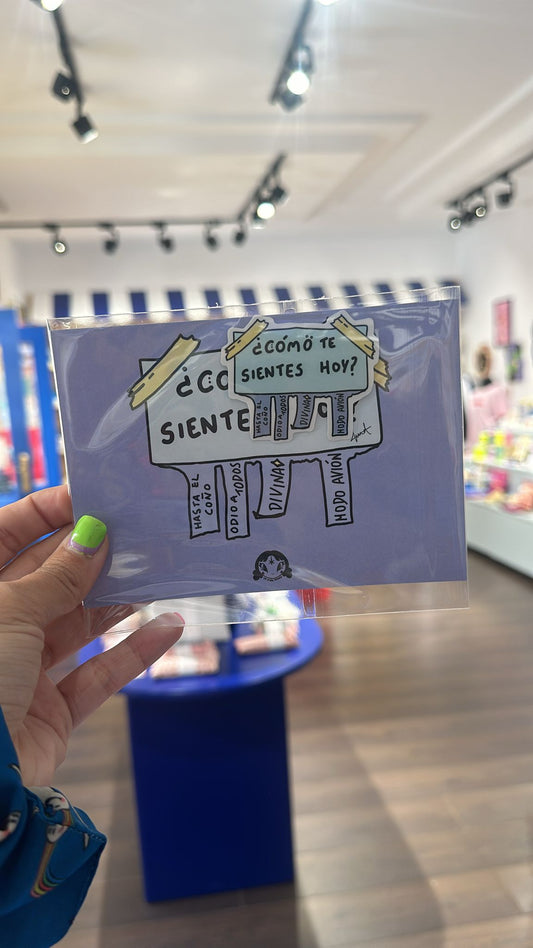 ¿CÓMO TE
SIENTES HOY?
HASTA EL
COÑO
ODIO A TODOS
DIVINA
MODO AVIÓN
¿CO
SIENTE
HASTA EL
COÑO
ODIO A TODOS
DIVINA
MODO AVIÓN